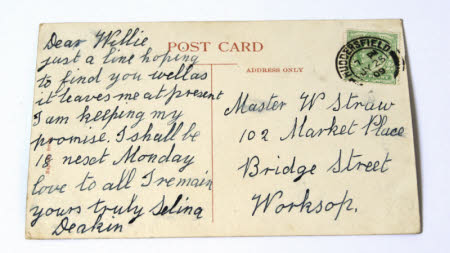 Dear Willie
just a line hoping
to find you well as
it leaves me at present
I am keeping my
promise. I shall be
18 next Monday
love to all I remain
yours truly Selina
Deakin
POST CARD
ADDRESS ONLY
HUDDERSFIELD
Master W Straw
102 Market Place
Bridge Street
Worksop.